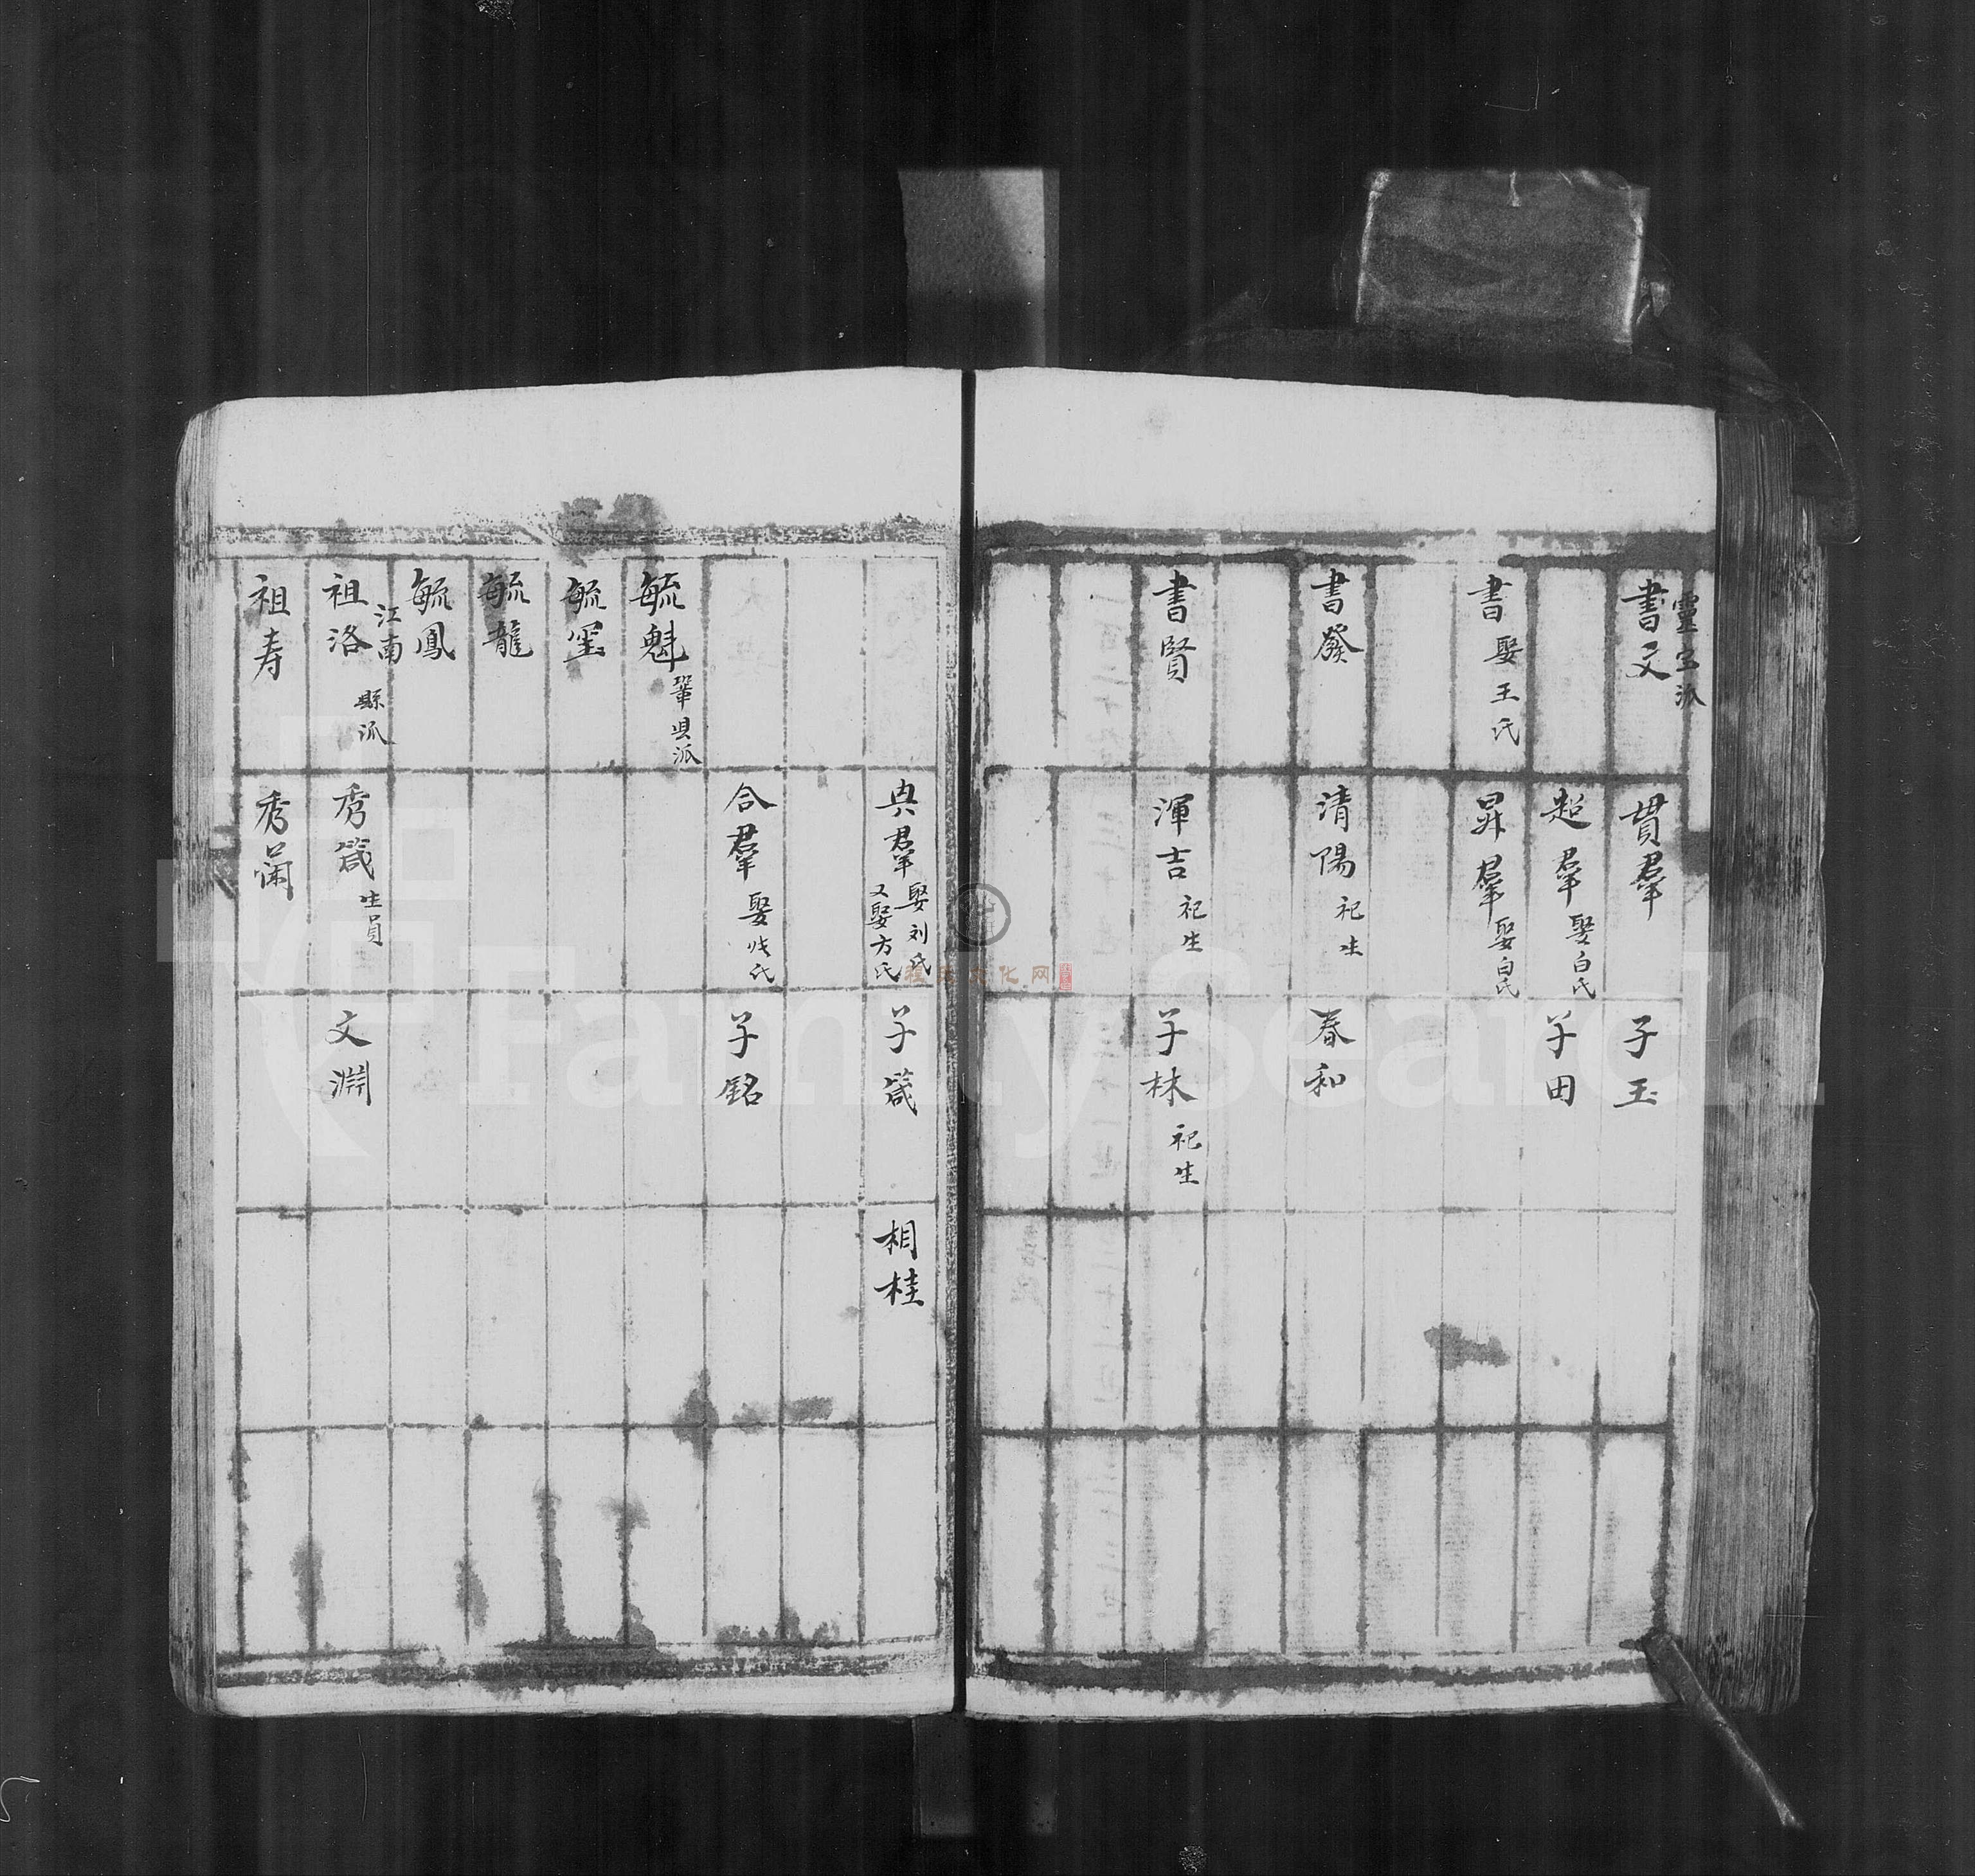 靈宝派
書文
貫羣
子玉
超羣
娶白氏
子田
書
娶王氏
昇羣
娶白氏
書發
清陽
祀生
春和
書賢
渾吉
祀生
子林
祀生
典羣
娶刘氏
又娶方氏
子箴
相桂
合羣
娶
氏
子銘
毓魁
鞏
派
毓
毓龍
毓鳳
江南
縣派
祖洛
秀箴
生員
文淵
祖寿
秀蘭
FamilySearch